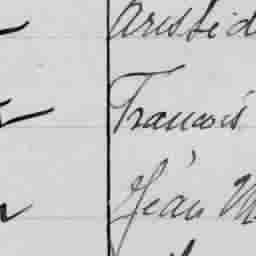 Aristid
Francois
Jean M